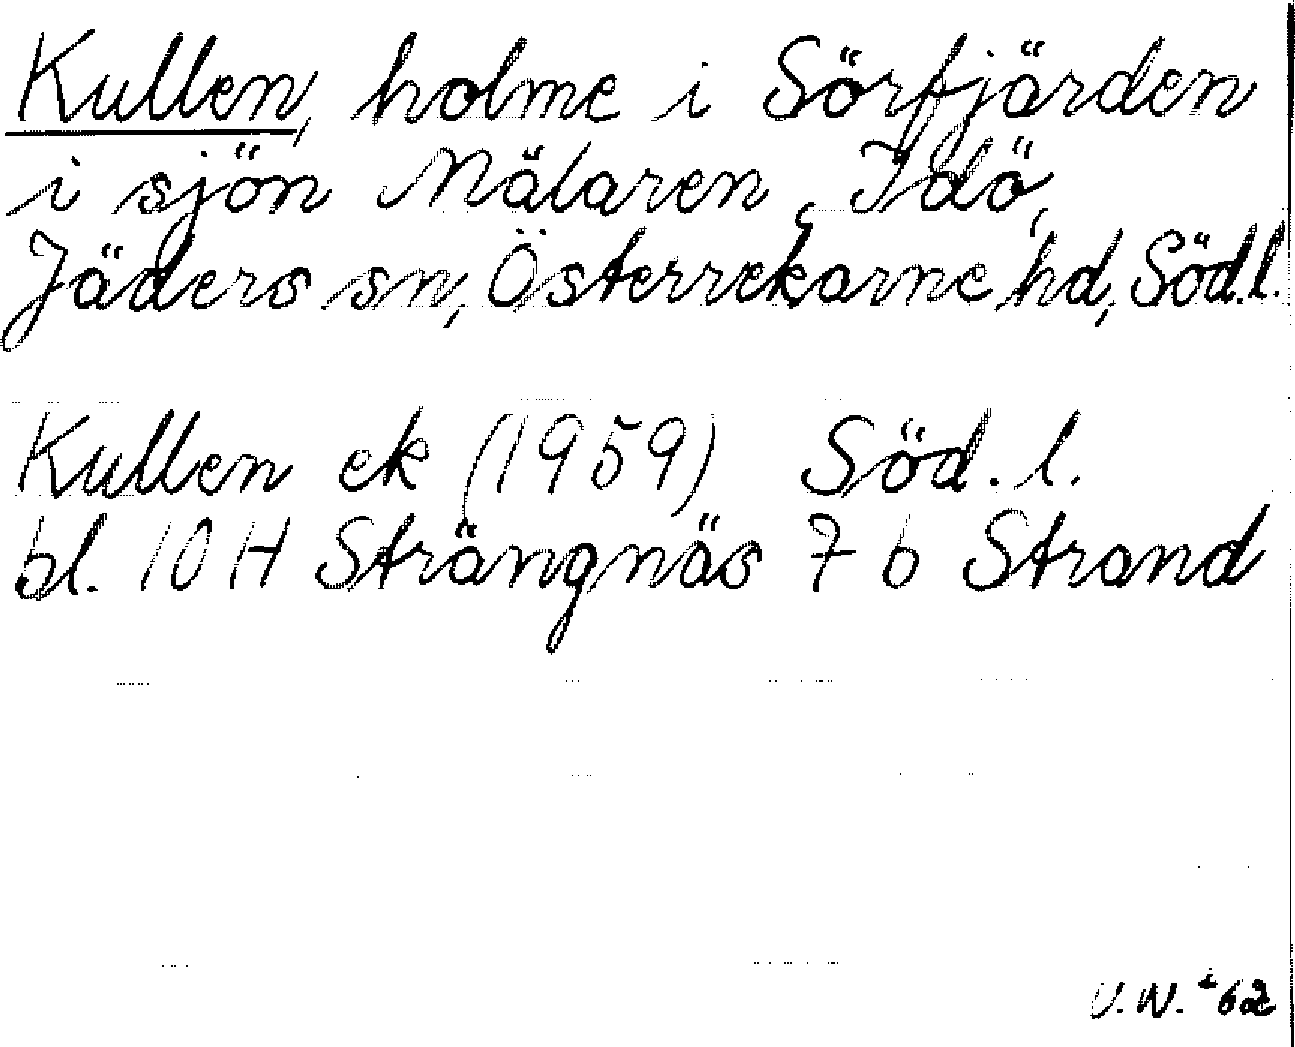 Kullen, holme i Sörfjärden
i sjön Mälaren, Idö,
Jäders sn, Österrekarne hd, Söd.l.
Kullen ek (1959) Söd. l.
bl. 10 H Strängnäs 7 b Strand
V.W. 62